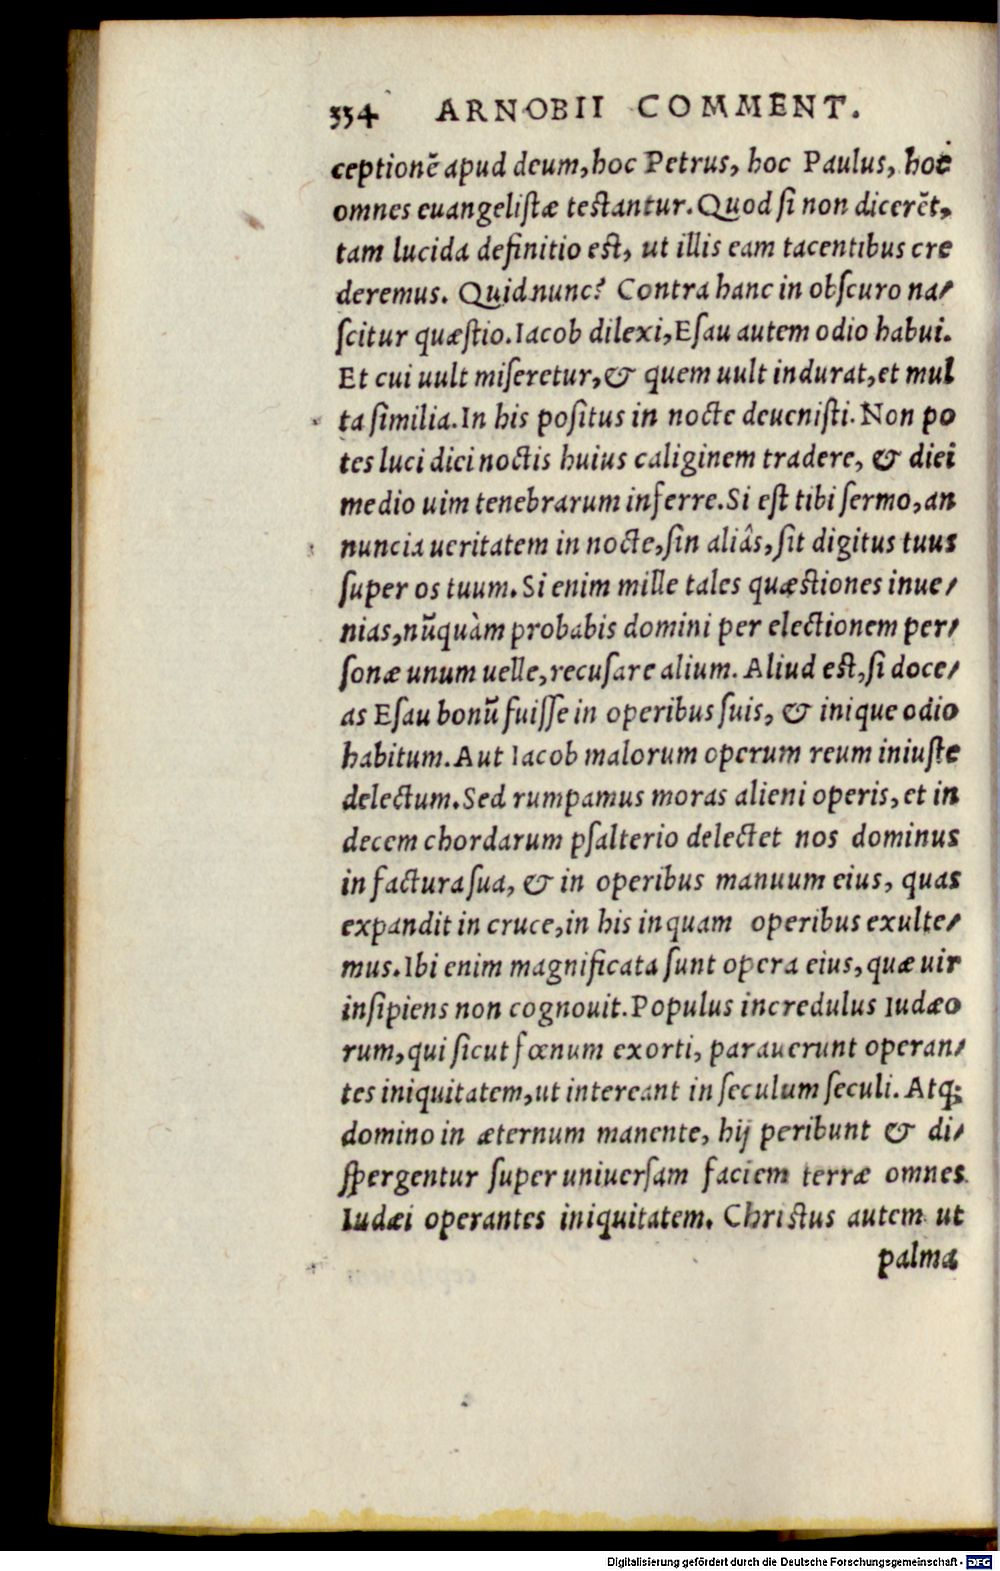 354 ARNOBII COMMENT.
ceptionē apud deum, hoc Petrus, hoc Paulus, hoc
omnes euangeliſtæ teſtantur. Quod ſi non dicerēt,
tam lucida definitio eſt, ut illis eam tacentibus cre
deremus. Quid nunc? Contra hanc in obſcuro na/
ſcitur quæſtio. Iacob dilexi, Eſau autem odio habui.
Et cui uult miſeretur, & quem uult indurat, et mul
ta ſimilia. In his poſitus in nocte deueniſti. Non po
tes luci diei noctis huius caliginem tradere, & diei
medio uim tenebrarum inferre. Si eſt tibi ſermo, an
nuncia ueritatem in nocte, ſin aliâs, ſit digitus tuus
ſuper os tuum. Si enim mille tales quæſtiones inue/
nias, nūquàm probabis domini per electionem per/
ſonæ unum uelle, recuſare alium. Aliud eſt, ſi doce/
as Eſau bonū fuiſſe in operibus ſuis, & inique odio
habitum. Aut Iacob malorum operum reum iniuſte
delectum. Sed rumpamus moras alieni operis, et in
decem chordarum pſalterio delectet nos dominus
in factura ſua, & in operibus manuum eius, quas
expandit in cruce, in his inquam operibus exulte/
mus. Ibi enim magnificata ſunt opera eius, quæ uir
inſipiens non cognouit. Populus incredulus Iudæo
rum, qui ſicut fœnum exorti, parauerunt operan/
tes iniquitatem, ut intereant in ſeculum ſeculi. Atq;
domino in æternum manente, hij peribunt & di/
ſpergentur ſuper uniuerſam faciem terræ omnes
Iudæi operantes iniquitatem. Chriſtus autem ut
palma
Digitalisierung gefördert durch die Deutsche Forschungsgemeinschaft - DFG